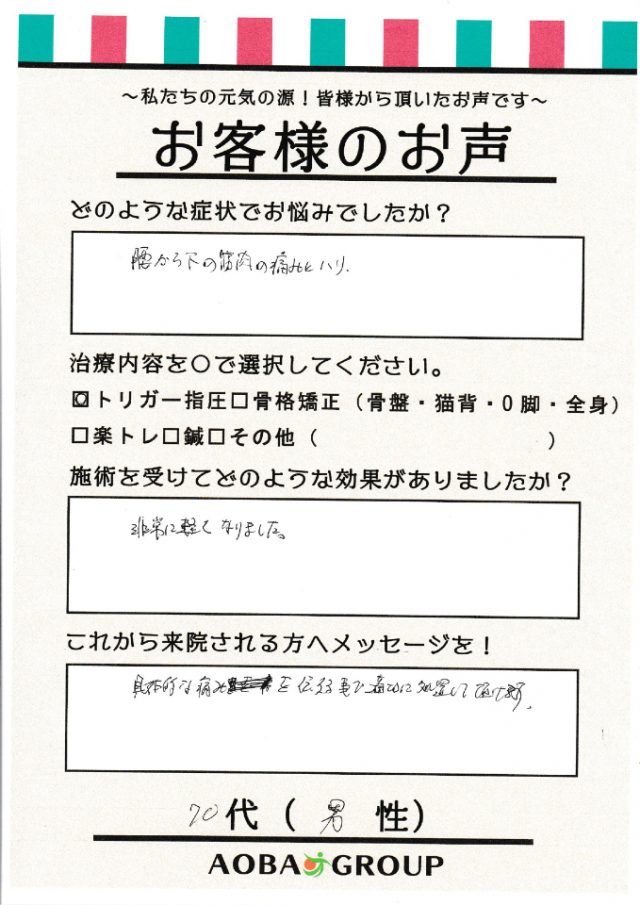 ~私たちの元気の源！皆様から頂いたお声です~
お客様のお声
どのような症状でお悩みでしたか？
腰から下の筋肉の痛みとハリ.
治療内容を〇で選択してください。
☒トリガー指圧□骨格矯正（骨盤・猫背・O脚・全身）
□楽トレ□鍼□その他（　　　　　　　）
施術を受けてどのような効果がありましたか？
非常に軽くなりました。
これから来院される方へメッセージを！
具体的な痛みを伝える事で適切に処置して頂けます.
70代（ 男 性）
AOBA GROUP